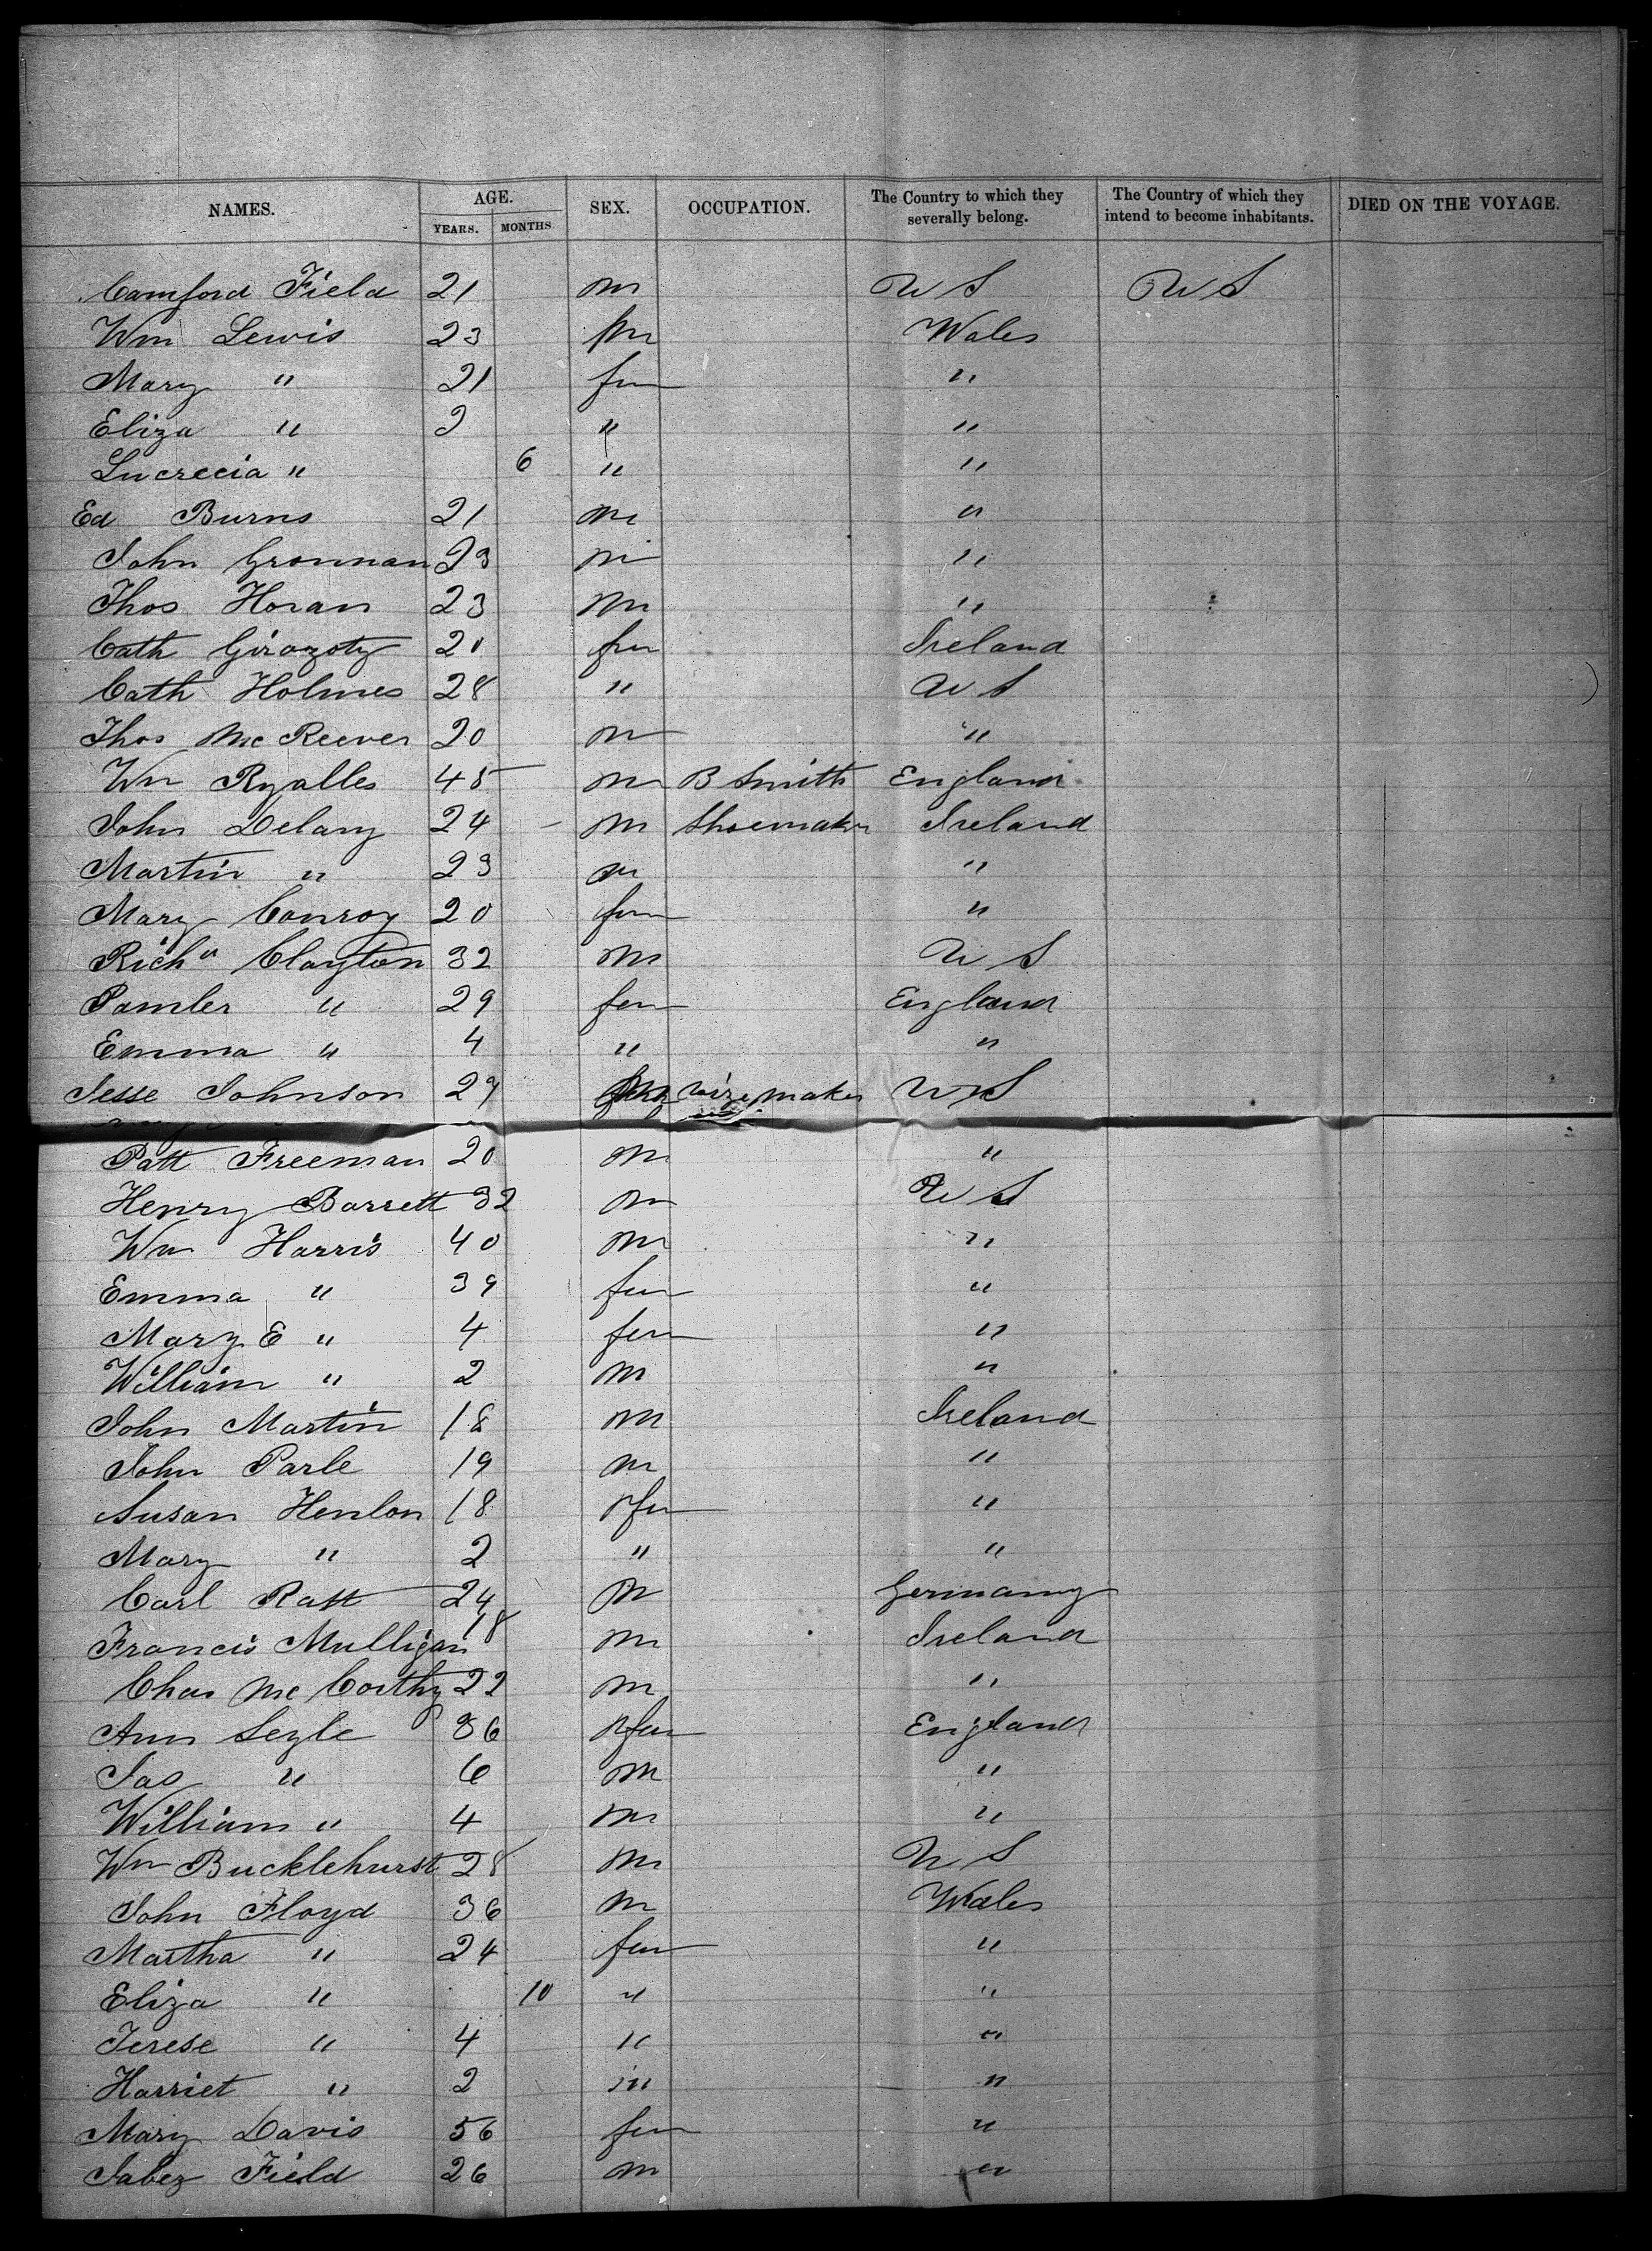 NAMES. AGE. SEX. OCCUPATION. The Country to which they severally belong. The Country of which they intend to become inhabitants. DIED ON THE VOYAGE.
YEARS. MONTHS
Camford Field 21 m U S U S
Wm Lewis 23 m Wales
Mary " 21 fem "
Eliza " 2 " "
Lucrecia " 6 " "
Ed Burns 21 m "
John Gronnan 23 m "
Thos Horan 23 m "
Cath 20 fem Ireland
Cath Holmes 28 " U S
Thos Mc Reever 20 m "
Wm Ryalles 45 m B Smith England
John Delany 24 m Shoemaker Ireland
Martin " 23 m "
Mary Conroy 20 fem "
Richd Clayton 32 m U S
Pamler " 29 fem England
Emma " 4 " "
Jesse Johnson 29 m maker U S
Patt Freeman 20 m "
Henry Barrett 32 m U S
Wm Harris 40 m "
Emma " 39 fem "
Mary E " 4 fem "
William " 2 m "
John Martin 18 m Ireland
John Parle 19 m "
Susan Henlon 18 fem "
Mary " 2 " "
Carl Ratt 24 m Germany
Francis Mulligan 18 m Ireland
Chas Mc Carthy 22 m "
Ann Seyle 36 fem England
Jas " 6 m "
William " 4 m "
Wm Bucklehurst 28 m U S
John Floyd 36 m Wales
Martha " 24 fem "
Eliza " 10 " "
Terese " 4 " "
Harriet " 2 " "
Mary Davis 56 fem "
Jabez Field 26 m "